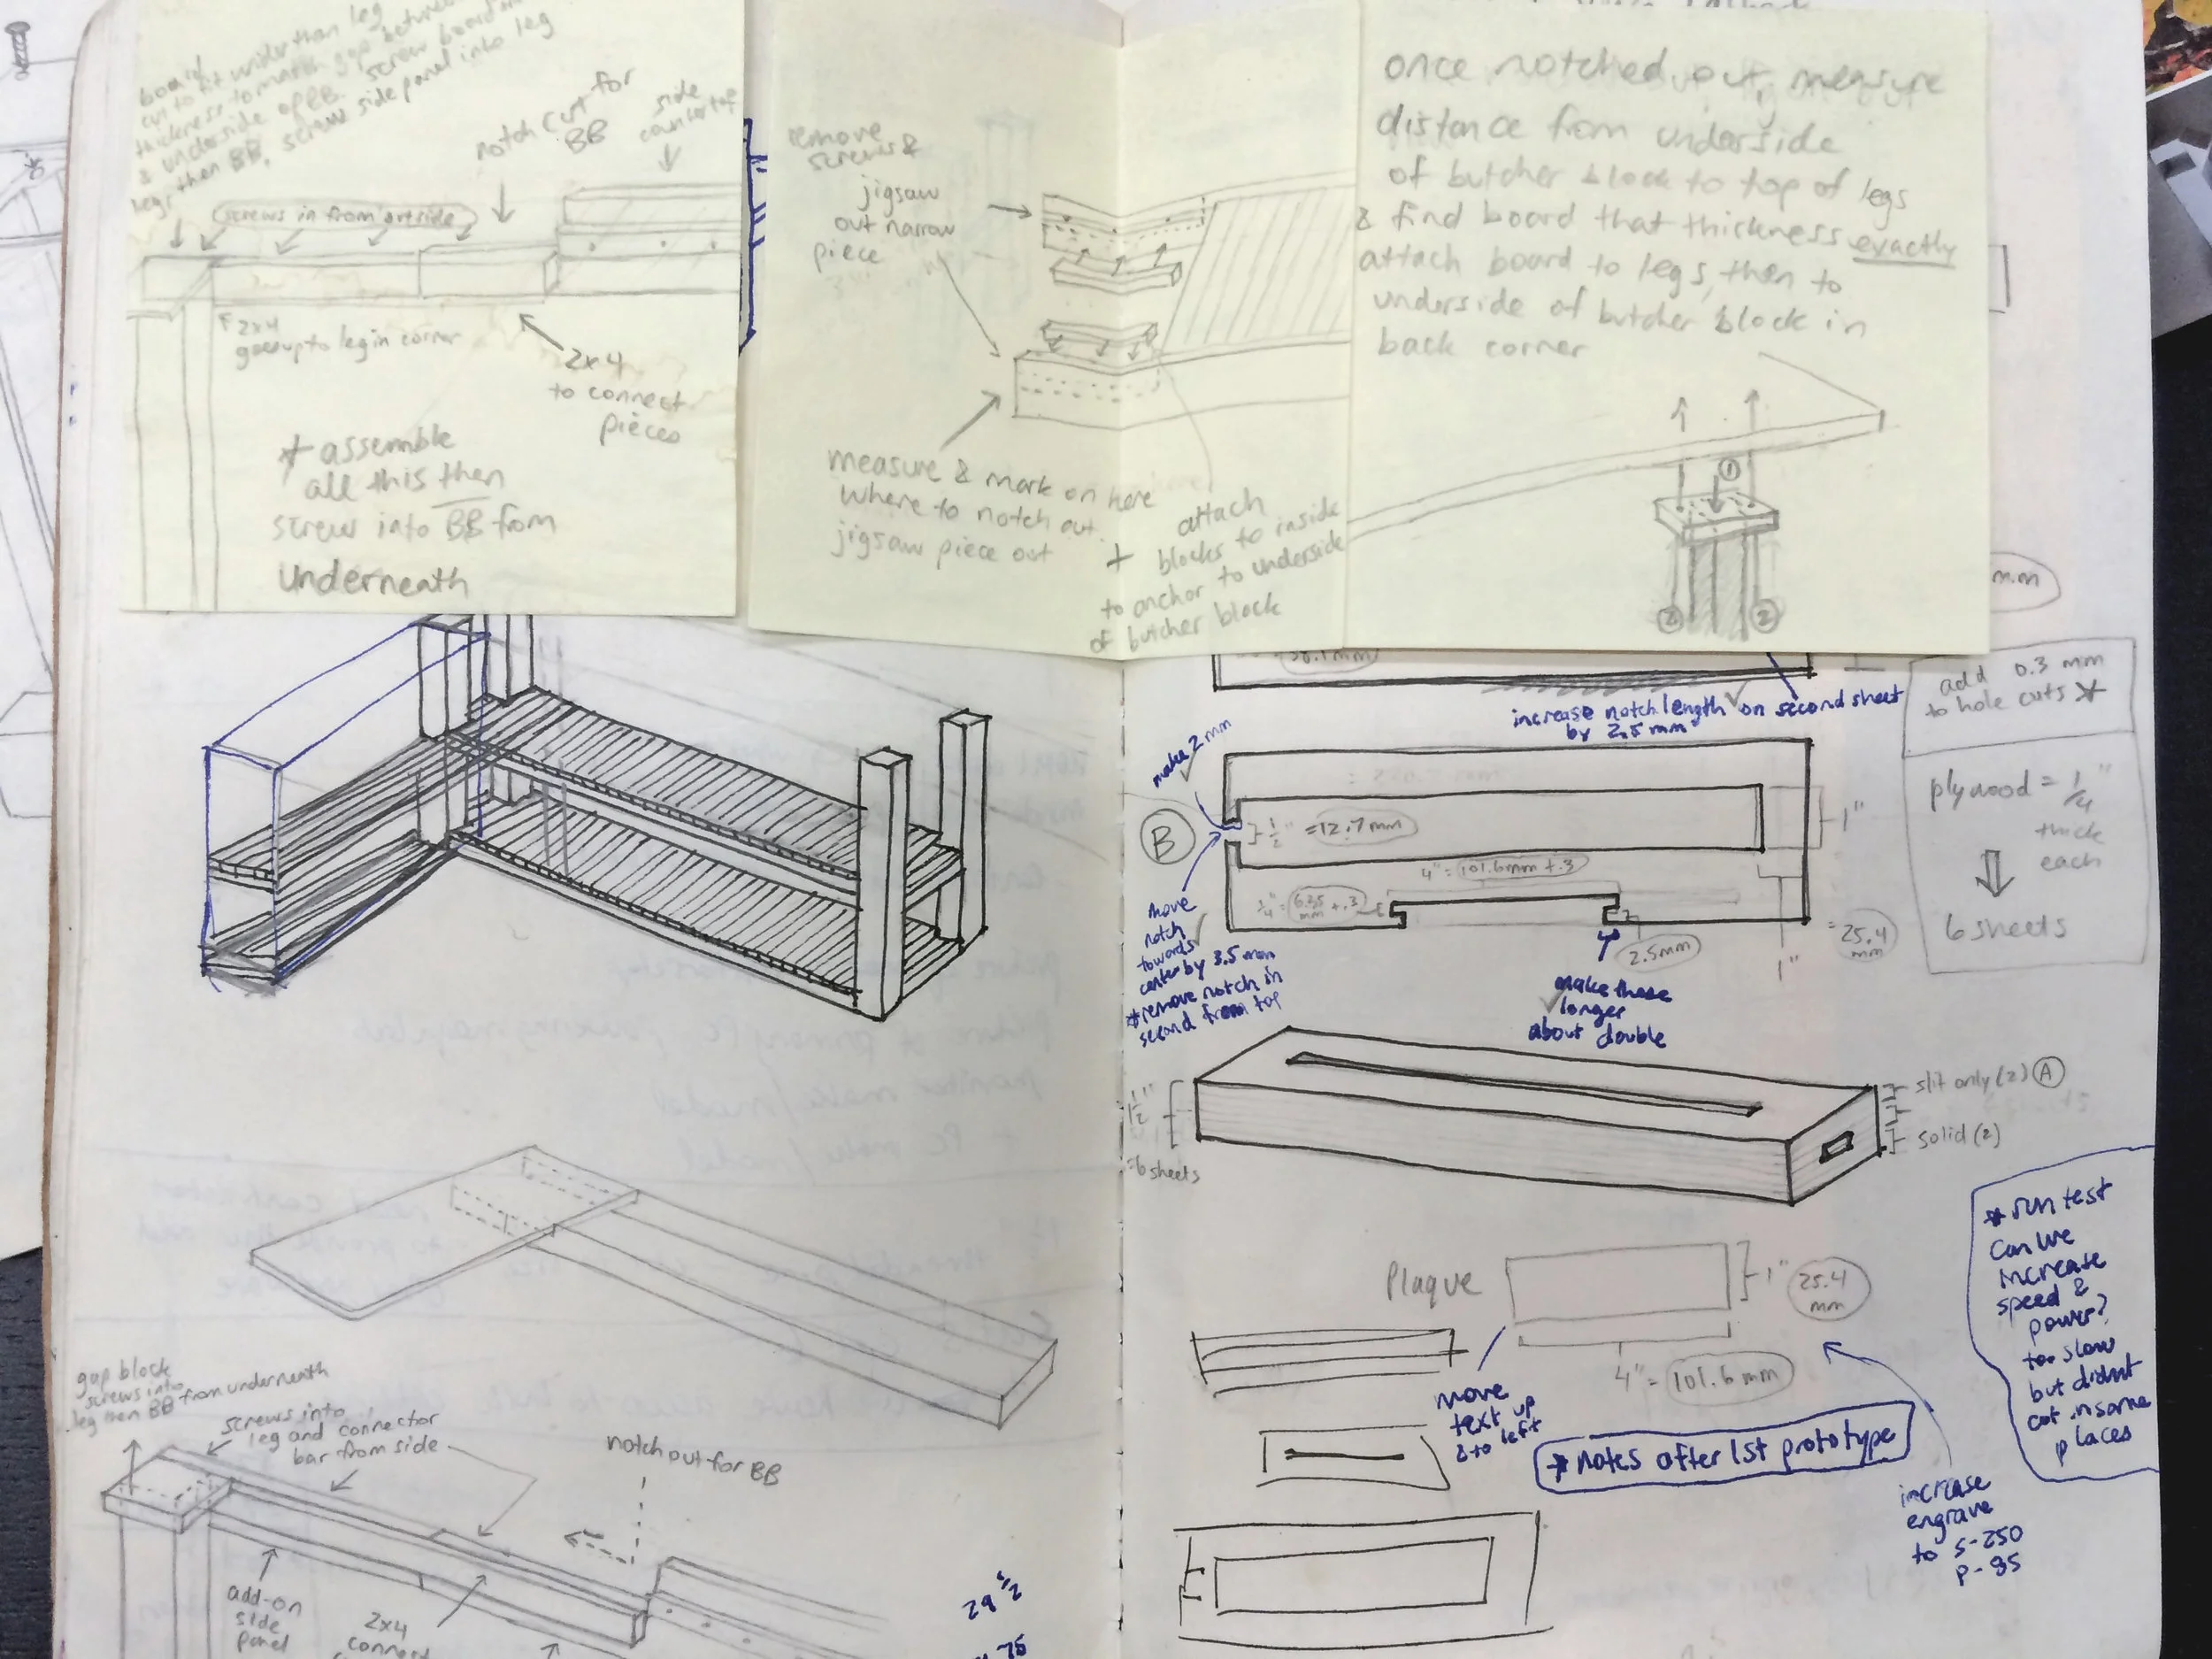 board
cut to fit wider than leg
thickness to match gap between
& underside of BB. screw board into
leg, then BB, screw side panel into leg
notch cut for
BB
side
countertop
screws in from outside
2x4
goes up to leg in corner
2x4
to connect
pieces
* assemble
all this then
screw into BB from
underneath
remove
screws &
jigsaw
out narrow
piece
measure & mark on here
where to notch out.
jigsaw piece out
+ attach
blocks to inside
to anchor to underside
of butcher block
once notched out, measure
distance from underside
of butcher block to top of legs
& find board that thickness exactly
attach board to legs, then to
underside of butcher block in
back corner
1
2
2
mm
38.1mm
increase notch length on second sheet
by 2.5 mm
add 0.3 mm
to hole cuts *
plywood = 1/4"
thick
each
6 sheets
make 2 mm
B
1/2" = 12.7 mm
1"
4" = 101.6mm + .3
1/4" = 6.35 mm + .3
2.5mm
1"
= 25.4 mm
move
notch
towards
center by 3.5 mm
* remove notch in
second from top
make these
longer
about double
1 1/2"
= 6 sheets
slit only (2) A
solid (2)
Plaque
1"
25.4
mm
4" = 101.6 mm
move
text up
& to left
* notes after 1st prototype
* run test
can we
increase
speed &
power?
too slow
but didnt
cut in some
places
increase
engrave
to S-250
P-85
gap block
screws into
leg then BB from underneath
screws into
leg and connector
bar from side
notch out for BB
add-on
side
panel
2x4
connect
29 1/2
75